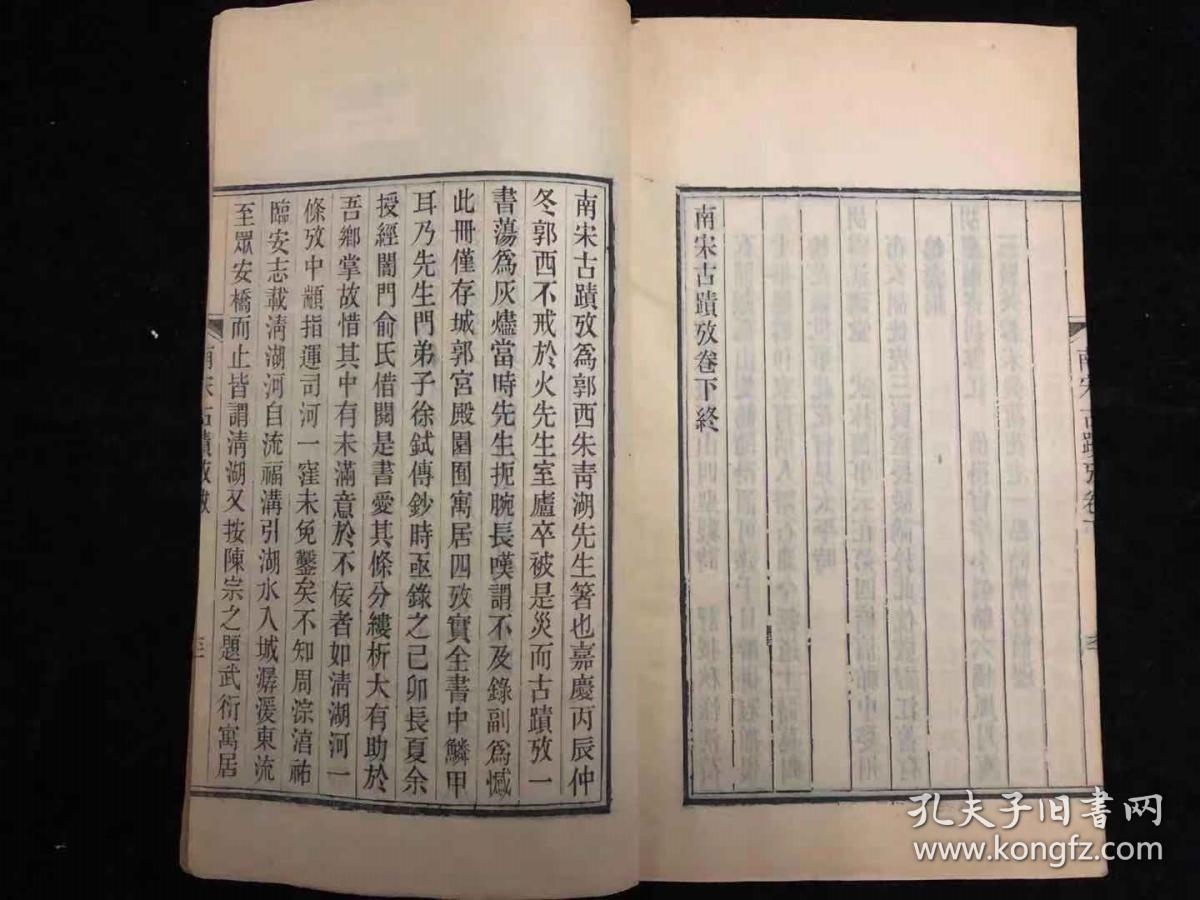 南宋古蹟攷卷下終
南宋古蹟攷卷下
南宋古蹟攷爲郭西朱靑湖先生箸也嘉慶丙辰仲
冬郭西不戒於火先生室廬卒被是災而古蹟攷一
書蕩爲灰燼當時先生扼腕長嘆謂不及錄副爲憾
此冊僅存城郭宮殿園囿寓居四攷實全書中鱗甲
耳乃先生門弟子徐鉽傳鈔時亟錄之己卯長夏余
授經閶門俞氏借閱是書愛其條分縷析大有助於
吾鄉掌故惜其中有未滿意於不佞者如清湖河一
條攷中顓指運司河一窪未免鑿矣不知周淙濇祐
臨安志載清湖河自流福溝引湖水入城潺湲東流
至眾安橋而止皆謂清湖又按陳宗之題武衍寓居
南宋古蹟攷
孔夫子旧书网
www.kongfz.com